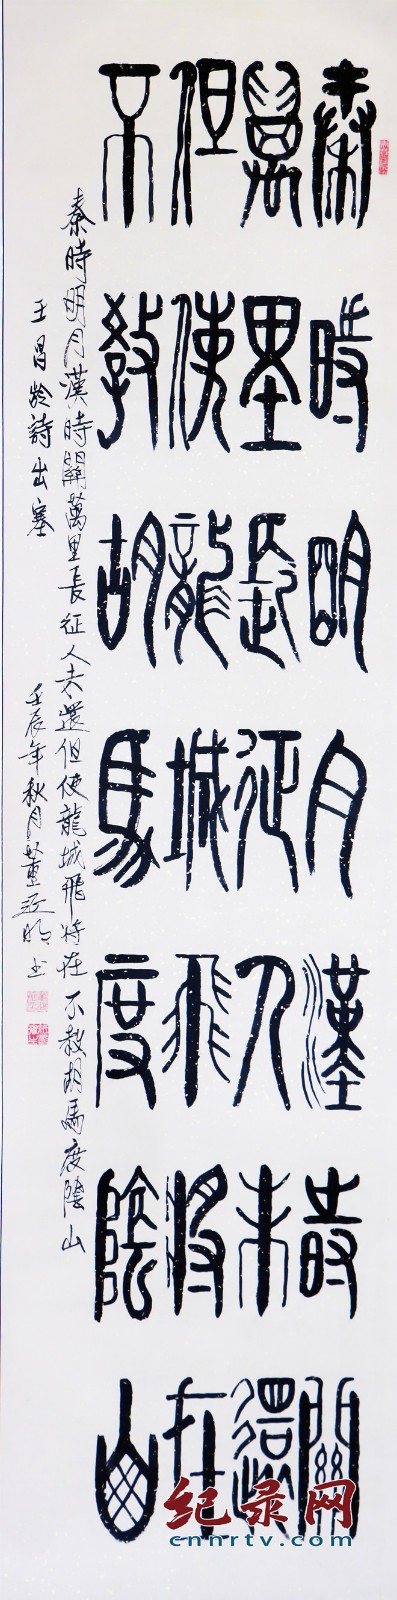 秦時明月漢時關
萬里長征人未還
但使龍城飛將在
不教胡馬度陰山
秦時明月漢時關萬里長征人未還但使龍城飛將在不教胡馬度陰山
王昌齡詩出塞
壬辰年秋月董
纪录网
cnnrtv.com